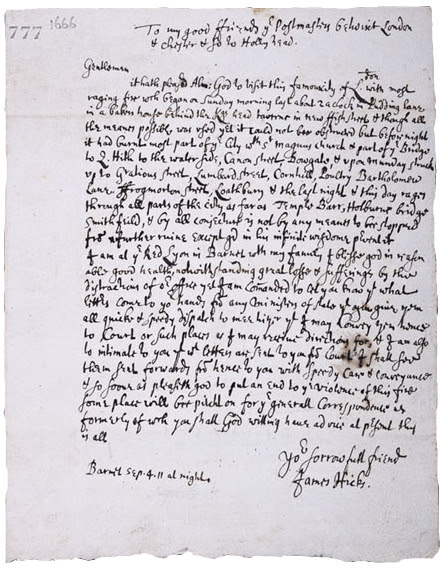 777 1666
To my good ffriends ye Postmasters betwixt London
& Chester & so to Holly head.
Gentlemen
it hath pleased Alm: God to visit this famous city of London with most
raging fire wch began on Sunday morning last about 2 a clock in Pudding lane
in a bakers house behind the Kings head taverne in new ffish street & though all
the meanes possible was used yet it could not bee obstructed but before night
it had burnt most part of ye City wth St magnus church & part of ye Bridge
to Q Hith to the water side, Canon street, Dowgate, & upon munday struck
up to Gratious street, Lumbard street, Cornhill, Poultry, Bartholomew
Lane, ffrogmorton street, Lothbury & the last night & this day rages
through all parts of the city as far as Temple Barr, Holburne bridge
Smithfeild, & by all conjecture is not by any meanes to be stopped
from a further ruine except god in his infinite wisdome prevent it
I am at ye Red Lyon in Barnet with my family, & blesse god in reason
able good health, notwithstanding great losse & sufferings by the
distractions of or office yet I am Comanded to let you know yt what
letters come to yor hands for any Minister of state yt you give them
all quicke & speedy dispatch to mee hither yt I may Convey them hence
to Court or such places as I may receive direction for & I am also
to intimate to you yt wt letters are sent to you from Court I shall see
them sent forwards from hence to you with speedy Care & conveyance
& so soone as pleaseth god to put an end to ye violence of this fire
some place will bee pitcht on for ye generall Correspondence as
formerly of wch you shall God willing have advice at present this
is all
Yor sorrowfull friend
James Hicks
Barnet Sep. 4. 11 at night.